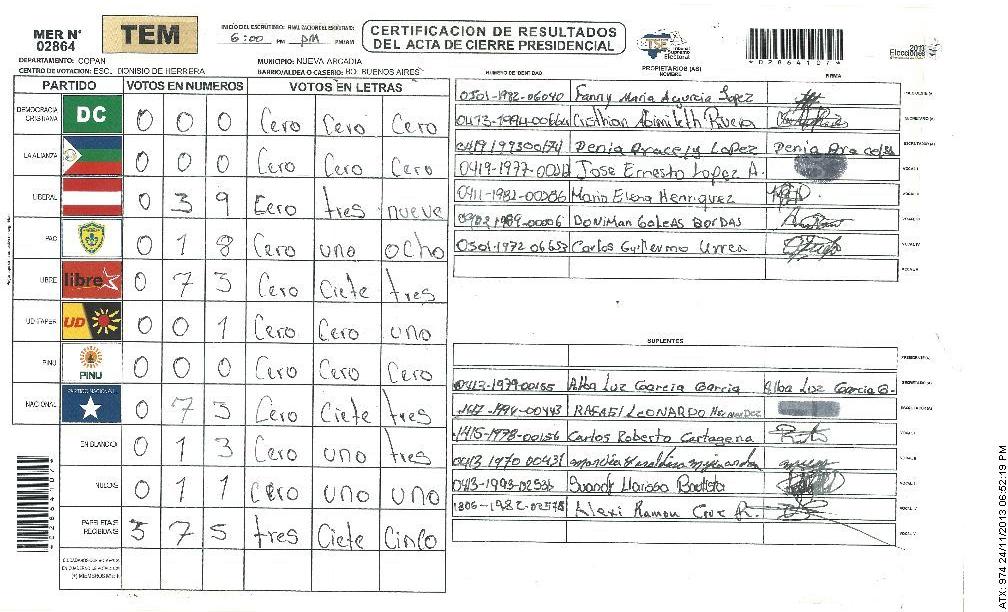 MER N°
02864
TEM
INICIO DEL ESCRUTINIO: FINALIZACION DEL ESCRUTINIO:
6:00 PM pm PM/AM
CERTIFICACION DE RESULTADOS
DEL ACTA DE CIERRE PRESIDENCIAL
TSE Tribunal Supremo Electoral
*02864107*
2013
Elecciones
DEPARTAMENTO: COPAN
MUNICIPIO: NUEVA ARCADIA
CENTRO DE VOTACION: ESC. DIONISIO DE HERRERA
BARRIO/ALDEA O CASERIO: BO. BUENOS AIRES
PARTIDO VOTOS EN NUMEROS VOTOS EN LETRAS
DEMOCRACIA CRISTIANA DC 0 0 0 Cero Cero Cero
LA ALIANZA 0 0 0 Cero Cero Cero
LIBERAL 0 3 9 Cero tres nueve
PAC 0 1 8 Cero uno ocho
LIBRE libre 0 7 3 Cero Ciete tres
UD-FAPER UD 0 0 1 Cero Cero uno
PINU PINU 0 0 0 Cero Cero Cero
NACIONAL PARTIDO NACIONAL 0 7 3 Cero Ciete tres
EN BLANCO 0 1 3 Cero uno tres
NULOS 0 1 1 Cero uno uno
PAPELETAS RECIBIDAS 3 7 5 tres Ciete Cinco
NUMERO DE IDENTIDAD PROPIETARIOS (AS) NOMBRE FIRMA
0501-1982-06040 Fanny Maria Agurcia Lopez
0413-1994-00664 Cristhian Abimileth Rivera
0419 199300174 Denia Aracely Lopez
0419-1977- Jose Ernesto Lopez A.
0411-1982-00286 Maria Elena Henriquez
0902 1989-00006 DONIMAN GALEAS BORDAS
0501-1972 06653 Carlos Guillermo Urrea
SUPLENTES
0413-1979-00155 Alba Luz Garcia Garcia Alba Luz Garcia G.
RAFAEL LEONARDO Hernandez
1415-1978-00156 Carlos Roberto Cartagena
0413 1970 00431
0413-1993-02536 Bautista
Alexi Ramon Cruz R.
*02864107*
ATX: 974 24/11/2013 06:52:19 PM